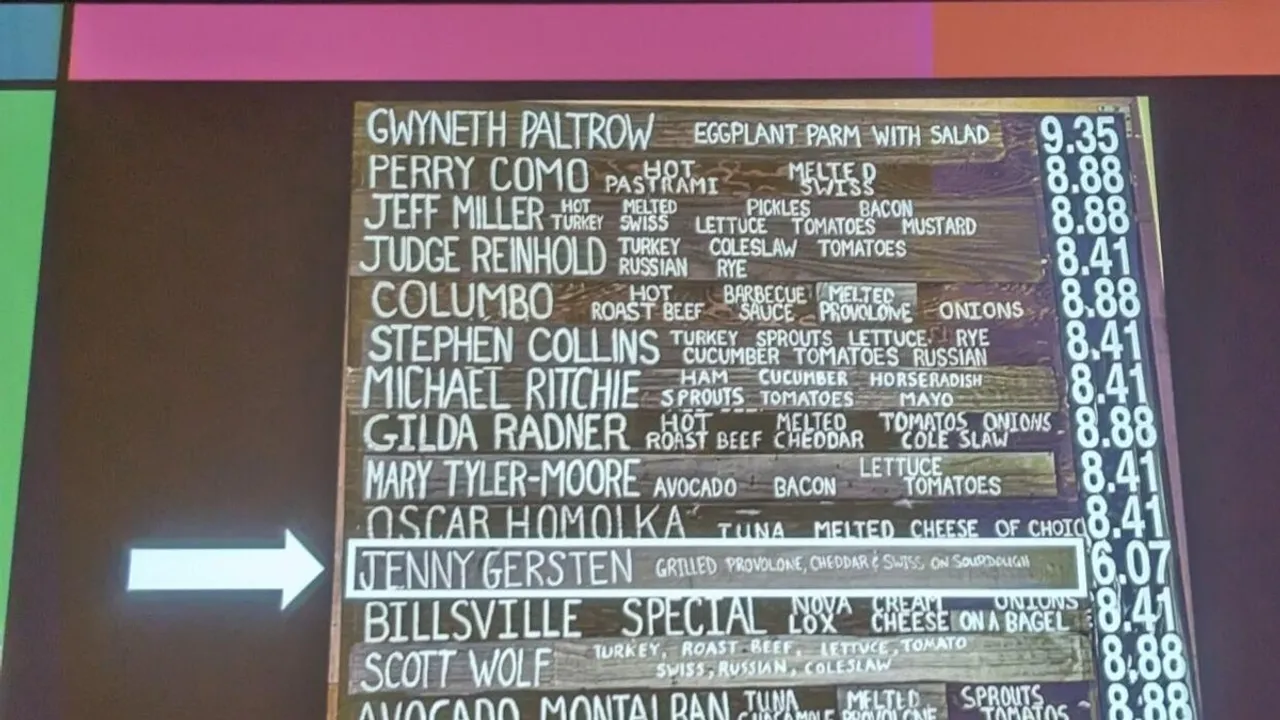 GWYNETH PALTROW EGGPLANT PARM WITH SALAD 9.35
PERRY COMO HOT PASTRAMI MELTED SWISS 8.88
JEFF MILLER HOT TURKEY MELTED SWISS PICKLES BACON LETTUCE TOMATOES MUSTARD 8.88
JUDGE REINHOLD TURKEY COLESLAW TOMATOES RUSSIAN RYE 8.41
COLUMBO HOT ROAST BEEF BARBECUE SAUCE MELTED PROVOLONE ONIONS 8.88
STEPHEN COLLINS TURKEY SPROUTS LETTUCE RYE CUCUMBER TOMATOES RUSSIAN 8.41
MICHAEL RITCHIE HAM CUCUMBER HORSERADISH SPROUTS TOMATOES MAYO 8.41
GILDA RADNER HOT ROAST BEEF MELTED CHEDDAR TOMATOS ONIONS COLE SLAW 8.88
MARY TYLER-MOORE AVOCADO BACON LETTUCE TOMATOES 8.41
OSCAR HOMOLKA TUNA MELTED CHEESE OF CHOIC 8.41
JENNY GERSTEN GRILLED PROVOLONE, CHEDDAR & SWISS ON SOURDOUGH 6.07
BILLSVILLE SPECIAL NOVA LOX CREAM CHEESE ONIONS ON A BAGEL 8.41
SCOTT WOLF TURKEY, ROAST BEEF, LETTUCE, TOMATO SWISS, RUSSIAN, COLESLAW 8.88
AVOCADO MONTALBAN TUNA GUACAMOLE MELTED PROVOLONE SPROUTS TOMATOS 8.88